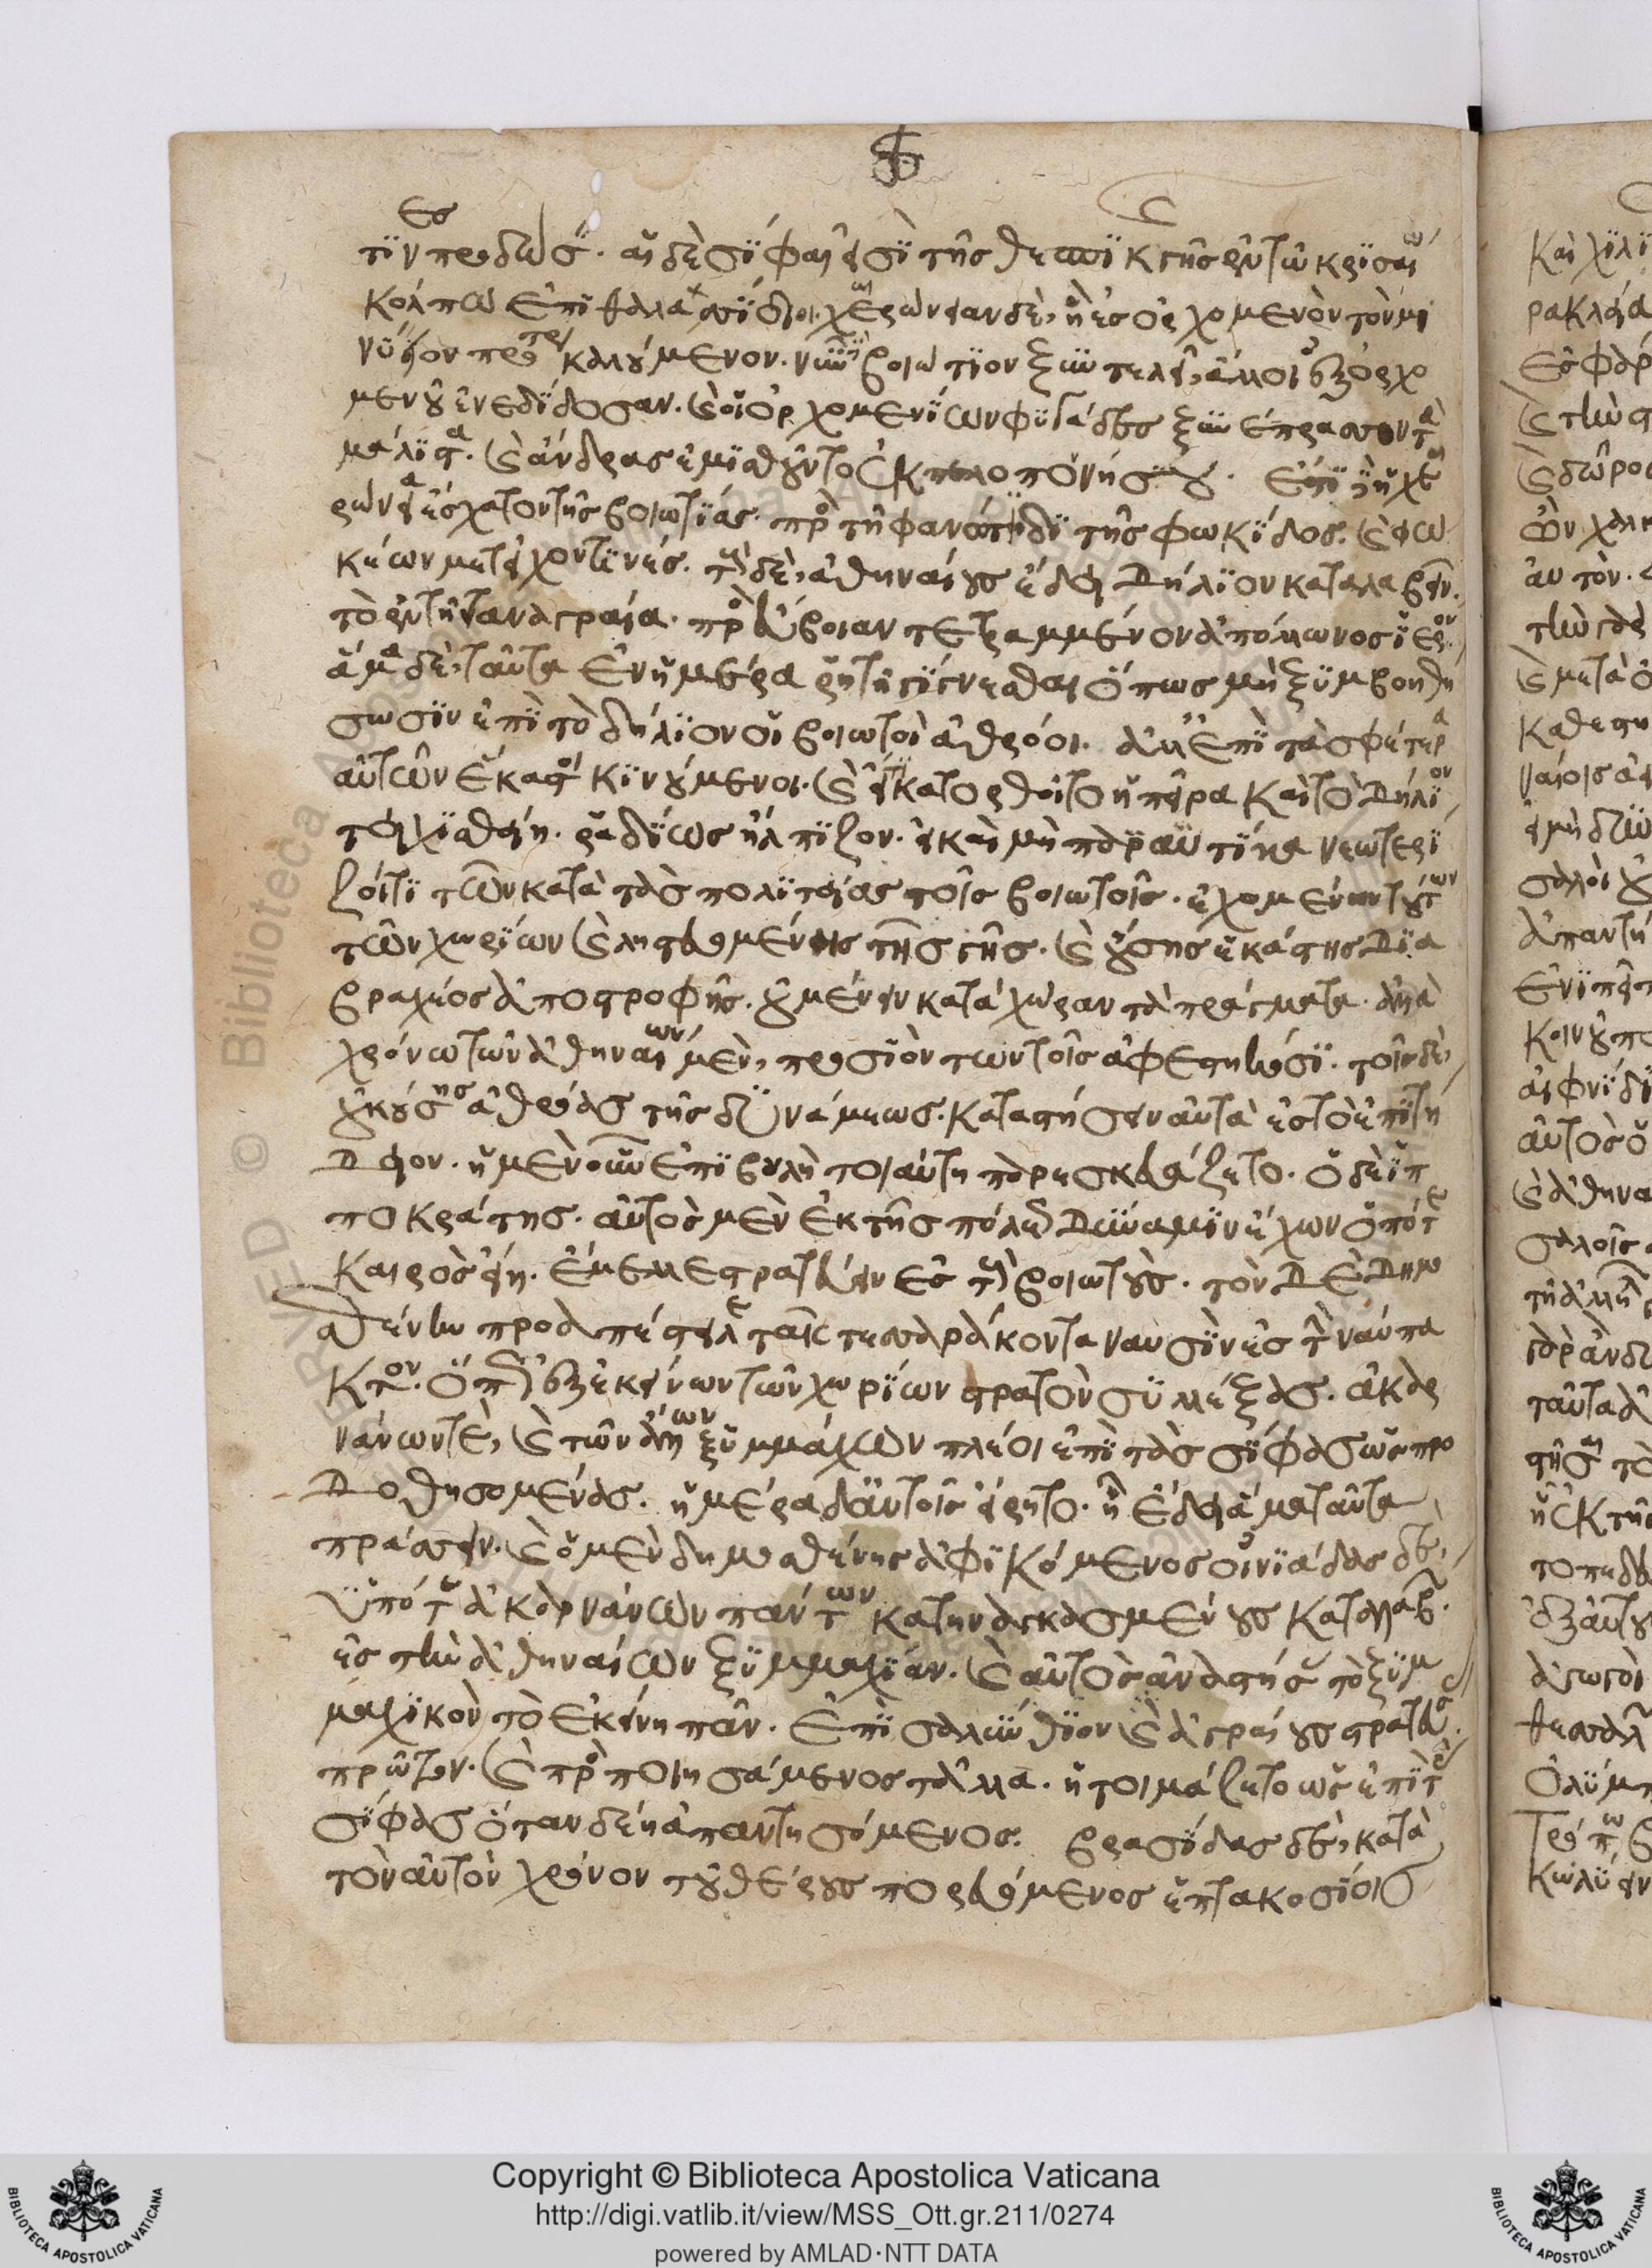 ϛ
ες
τϊν προδώσ. αἱ δὲ σῖφαι εἰσὶ τῆς θεσπϊκ γῆς ἐν τῶ κρισαίω
κόλπω ἐπϊ θαλάσσϊδιοι. χαιρώνειαν δὲ, ἣ ἐς ὀρχομενὸν τὸν μι
νύειον πρότερ καλούμενον. νῦν βοιώτϊον ξυντελεῖ, ἄλλοι ἐξ ὀρχο
μενοῦ ἐνεδίδοσαν. καὶ οἱ ὀρχομενίων φϋγάδες ξυνέπρασσον τὰ
μάλιστα. καὶ ἄνδρας ἐμισθοῦντο ἐκ πελοπονήσου. ἔστι δὲ ἡ χαι
ρώνεια ἔσχατον τῆς βοιωτίας. πρὸ τῆ φανότιδι τῆς φωκίδος. καὶ φω
κέων μετεῖχον τϊνές. τοὺς δὲ, ἀθηναίους ἔδει Δήλϊον καταλαβεῖν.
τὸ ἐν τῆ ταναγραία. πρὸ εὔβοιαν τετραμμένον ἀπόλλωνος ἱερόν.
ἅμα δὲ, ταῦτα ἐν ἡμέρα ῥητῆ γίγνεσθαι ὅπως μὴ ξϋμβοηθή
σωσϊν ἐπϊ τὸ δήλϊον οἱ βοιωτοὶ ἀθρόοι. ἀλλ' ἐπϊ τὰ σφέτερα
αὐτῶν ἕκαστοι κϊνούμενοι. καὶ εἰ κατορθοῖτο ἡ πεῖρα καὶ τὸ Δήλϊον
τειχισθείη. ῥαδίως ἤλπϊζον. εἰ καὶ μὴ παραυτίκα νεωτερί
ζοιτϊ τῶν κατὰ τὰς πολϊτείας τοῖς βοιωτοῖς. ἐχομένων τούτων
τῶν χωρίων καὶ λῃστευομένης τῆς γῆς. καὶ οὔσης ἑκάστης Δϊα
βραχέος ἀποστροφῆς. οὐ μένειν κατὰ χώραν τὰ πράγματα. ἀλλὰ
χρόνω τῶν ἀθηναίων μὲν, προσϊόντων τοῖς ἀφεστηκόσϊ. τοῖς δὲ,
οὐκ οὔσης ἀθρόας τῆς δϋνάμεως. καταστήσειν αὐτὰ ἐς τὸ ἐπϊτή
Δειον. ἡ μὲν οὖν ἐπϊβουλὴ τοιαύτη παρεσκευάζετο. ὁ δὲ ἱπ
ποκράτης. αὐτὸς μὲν ἐκ τῆς πόλεως Δύναμϊν ἔχων ὁπότε
καιρὸς εἴη. ἔμελλε στρατεύειν ἐς τοὺς βοιωτούς. τὸν Δὲ Δημο
σθένην προαπέστειλε ταῖς τεσσαράκοντα ναυσὶν ἐς τὴν ναύπα
κτον. ὅπως ἐξ ἐκείνων τῶν χωρίων στρατὸν σϋλλέξας. ἀκαρ
νάνων τὲ, καὶ τῶν ἄλλων ξυμμάχων πλέοι ἐπϊ τὰς σίφας ὡς προ
Δοθησομένας. ἡμέρα δ' αὐτοῖς εἴρητο. ἧ ἔδει ἅμα ταῦτα
πράσσειν. καὶ ὁ μὲν δημοσθένης ἀφϊκόμενος οἰνϊάδας δὲ,
ὑπό τε ἀκαρνάνων πάντων κατηναγκασμένους καταλαβ.
ἐς τὴν ἀθηναίων ξϋμμαχίαν. καὶ αὐτὸς ἀναστήσας τὸ ξϋμ
μαχϊκὸν τὸ ἐκείνη πᾶν. ἐπϊ σαλύνθϊον καὶ ἀγραίους στρατεύσ.
πρῶτον. καὶ προσποιησάμενος τἄλλα. ἡτοιμάζετο ὡς ἐπϊ τὰς
σίφας ὅταν δέη ἀπαντησόμενος. βρασίδας δὲ, κατὰ
τὸν αὐτὸν χρόνον τοῦ θέρους πορευόμενος ἑπτακοσίοις
Copyright © Biblioteca Apostolica Vaticana
http://digi.vatlib.it/view/MSS_Ott.gr.211/0274
powered by AMLAD·NTT DATA